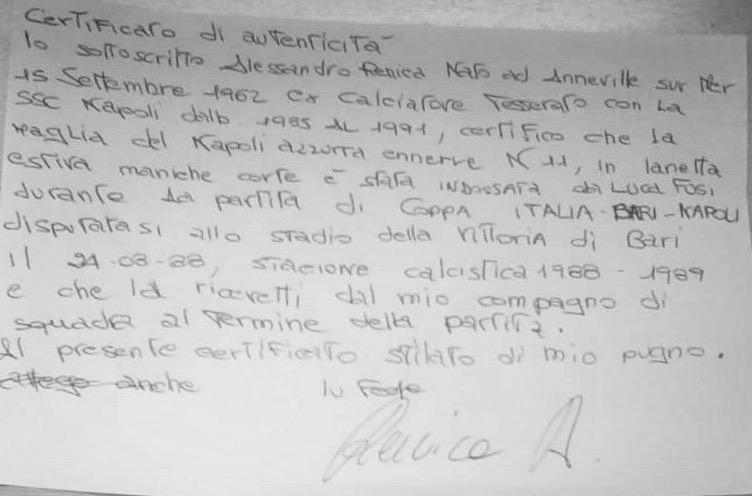 Certificato di autenticità
Io sottoscritto Alessandro Renica Nato ad Anneville sur Mer
15 Settembre 1962 ex calciatore Tesserato con la
SSC Napoli dalb 1985 al 1991, certifico che la
maglia del Napoli azzurra ennerre N 11, in lanetta
estiva maniche corte è stata INDOSSATA da LUCA FUSI
durante la partita di COPPA ITALIA-BARI-NAPOLI
disputatasi allo stadio della Vittoria di Bari
il 24-08-88, stacione calcistica 1988-1989
e che la ricevetti dal mio compagno di
squadra al termine della partita.
Il presente certificato stilato di mio pugno.
anche In Fede
Renica A.